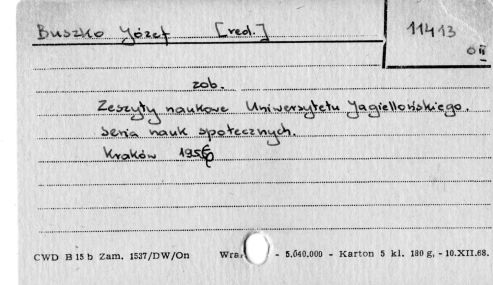 Buszko Józef [red.]
11413
ō II
zob.
Zeszyty naukowe Uniwersytetu Jagiellońskiego.
Seria nauk społecznych.
Kraków 1956
CWD B 15 b Zam. 1537/DW/On - 5.040.000 - Karton 5 kl. 180 g, - 10.XII.68.